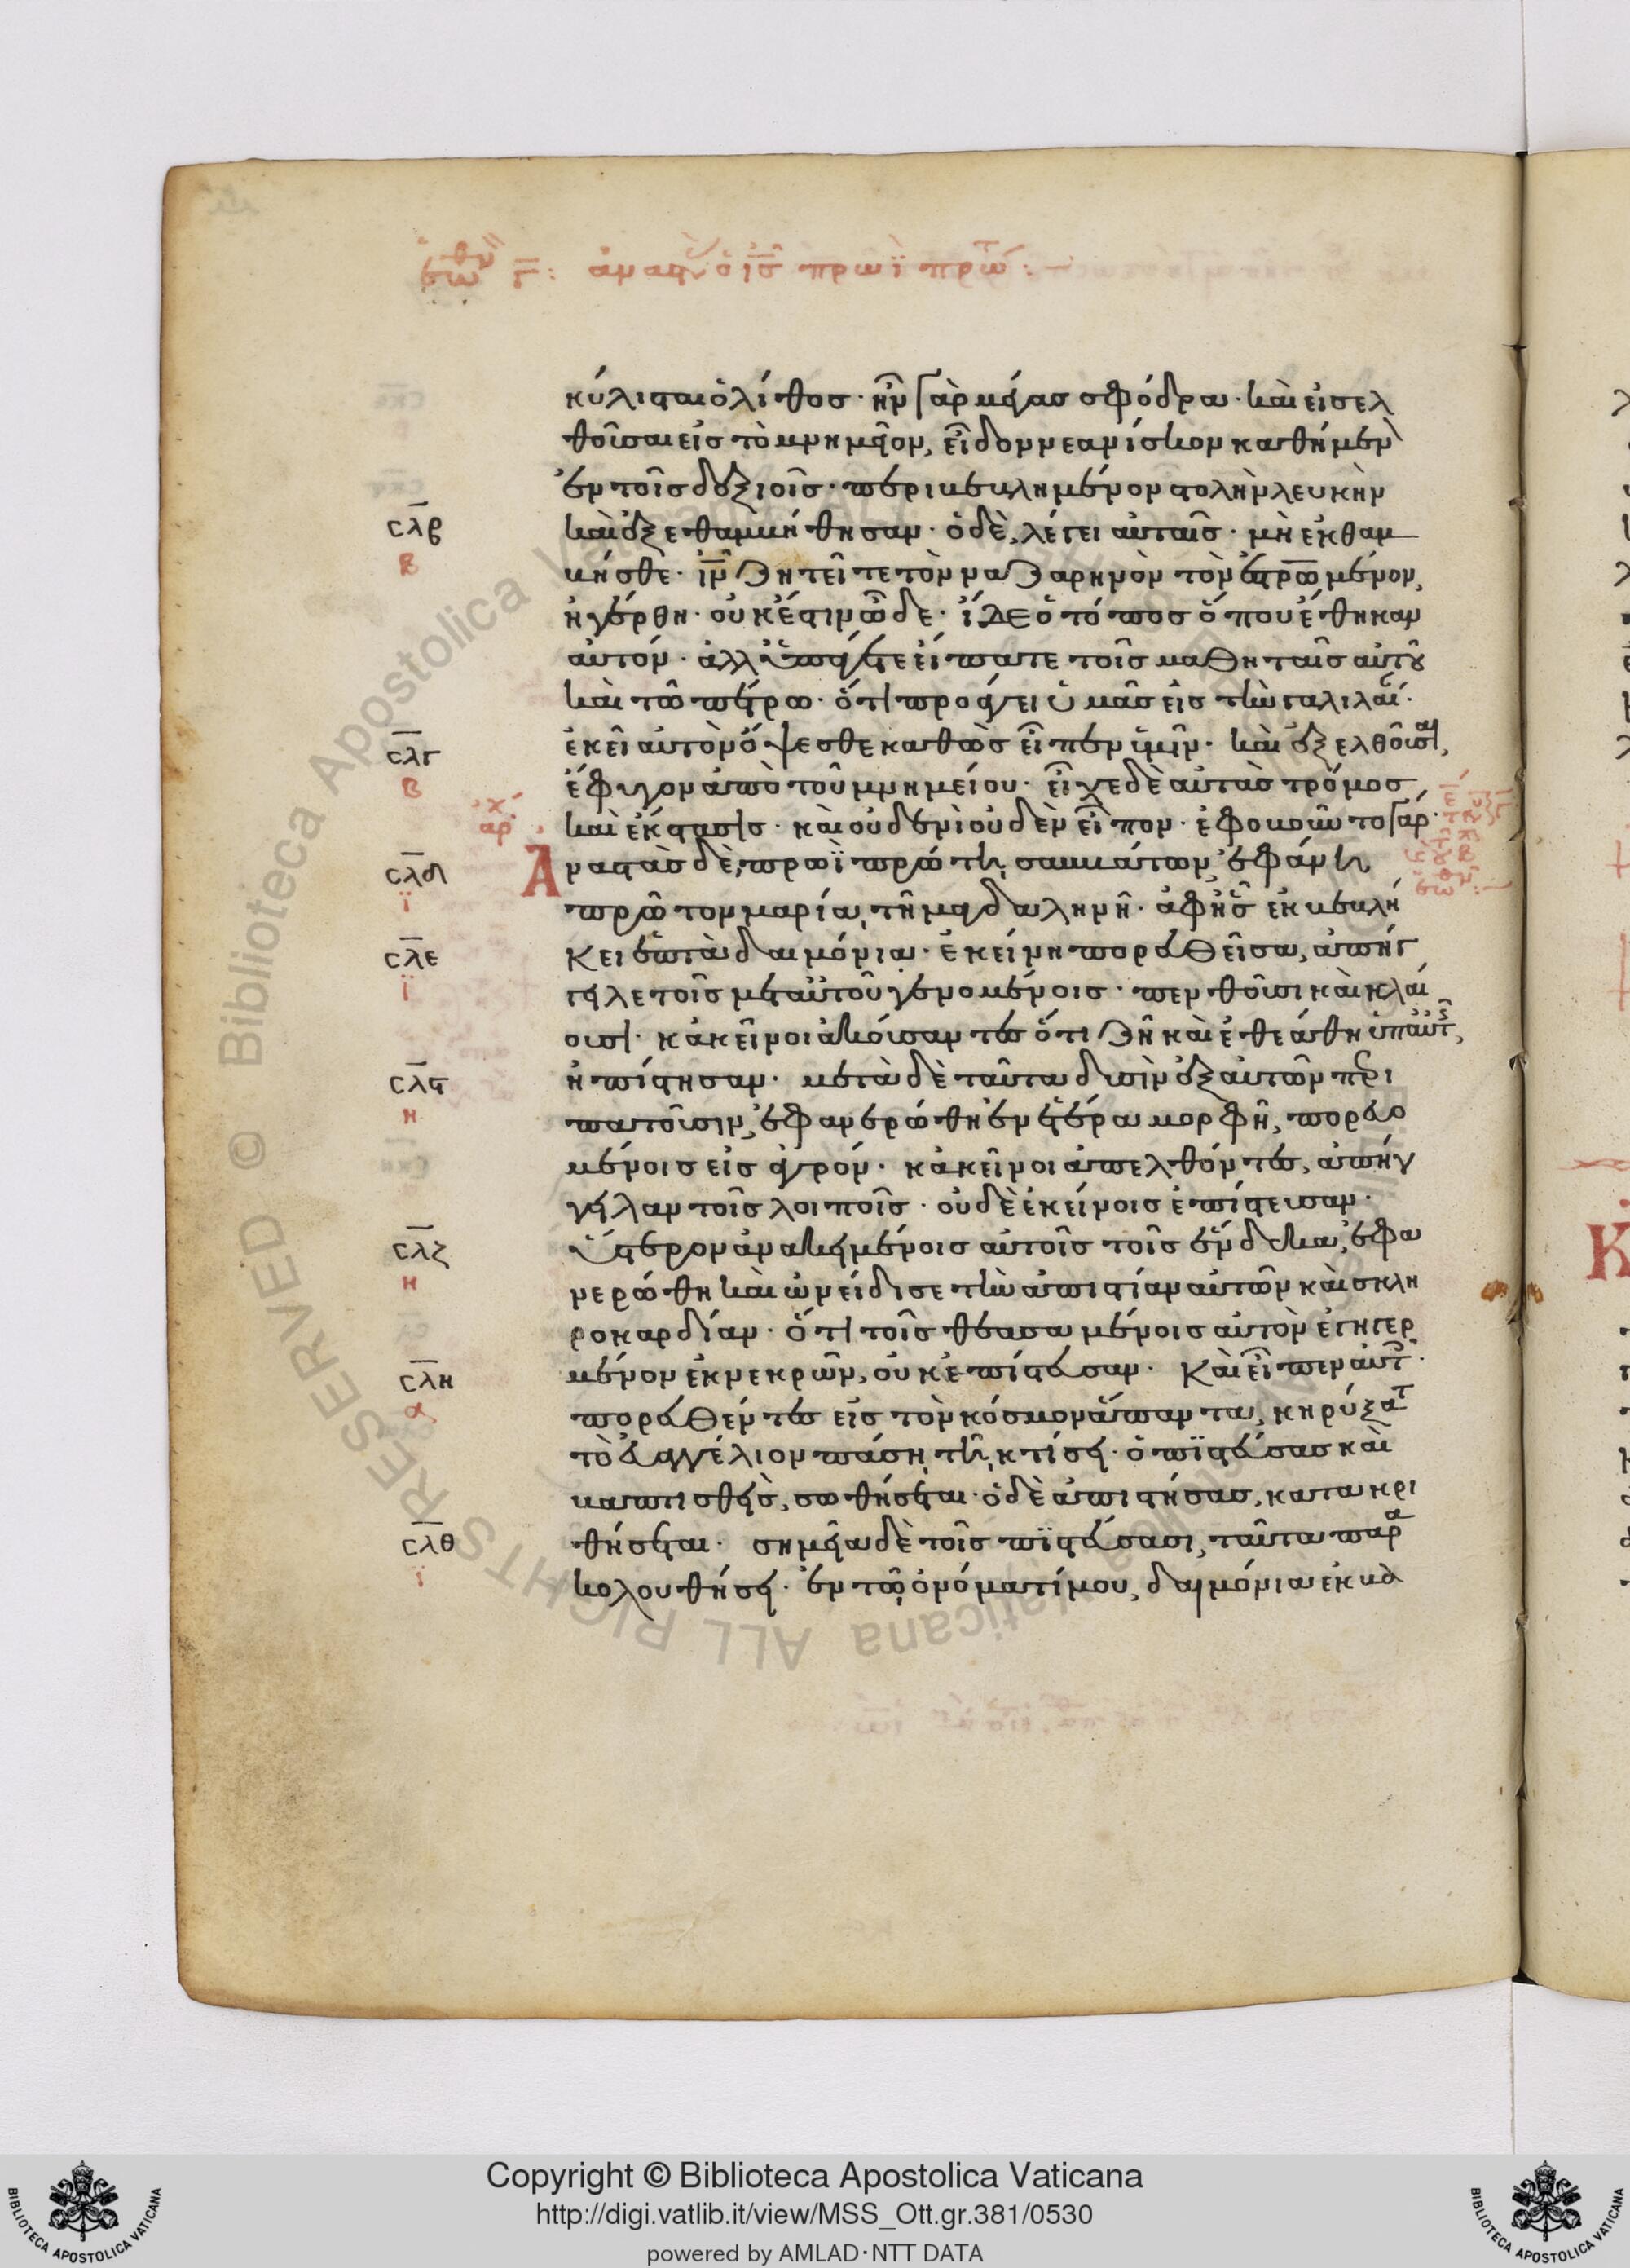 ἑωθ γ: ἀναστὰς ὁ ις πρωῒ πρώτ:
κύλισται ὁ λίθοσ· ἦν γὰρ μέγασ σφόδρα· καὶ εἰσελ
θοῦσαι εἰσ τὸ μνημεῖον, εἶδον νεανίσκον καθήμεν
ἐν τοῖσ δεξιοῖσ· περιβεβλημένον στολὴν λευκὴν
σλβ
καὶ ἐξεθαμβήθησαν· ὁ δὲ, λέγει αὐταῖσ· μὴ ἐκθαμ
β
βῆσθε· ιν ζητεῖτε τὸν ναζαρηνὸν τὸν ἐστρωμένον,
ἠγέρθη· οὐκ ἔστιν ὧδε· ἴδε ὁ τόποσ ὅπου ἔθηκαν
αὐτόν· ἀλλ' ὑπάγετε εἴπατε τοῖσ μαθηταῖσ αὐτοῦ
καὶ τῶ πέτρω· ὅτι προάγει ὑμᾶσ εἰσ τὴν γαλιλαί·
σλγ
ἐκεῖ αὐτὸν ὄψεσθε καθὼσ εἶπεν ὑμῖν· καὶ ἐξελθοῦσαι,
β
ἔφυγον ἀπὸ τοῦ μνημείου· εἶχε δὲ αὐτὰσ τρόμοσ
αρχ
καὶ ἔκστασισ· καὶ οὐδενὶ οὐδὲν εἶπον· ἐφοβοῦντο γάρ·
σλδ
Ἀναστὰσ δὲ, πρωῒ πρώτη σαββάτων, ἐφάνη
ι
πρῶτον μαρία τῆ μαγδαληνῆ· ἀφ' ἧς ἐκβεβλή
σλε
κει ἑπτὰ δαιμόνια· ἐκείνη πορευθεῖσα, ἀπήγ
ι
γειλε τοῖσ μετ' αὐτοῦ γενομένοισ· πενθοῦσι καὶ κλαί
ουσι· κἀκεῖνοι ἀκούσαντεσ ὅτι ζῆ καὶ ἐθεάθη ὑπ' αὐτῆς,
σλϛ
ἠπίστησαν· μετὰ δὲ ταῦτα δυσὶν ἐξ αὐτῶν περι
η
πατοῦσιν, ἐφανερώθη ἐν ἑτέρα μορφῆ, πορευο
μένοισ εἰσ ἀγρόν· κἀκεῖνοι ἀπελθόντεσ, ἀπήγ
γειλαν τοῖσ λοιποῖσ· οὐδὲ ἐκείνοισ ἐπίστευσαν·
σλζ
Ὕστερον ἀνακειμένοισ αὐτοῖσ τοῖσ ἕνδεκα, ἐφα
η
νερώθη καὶ ὠνείδισε τὴν ἀπιστίαν αὐτῶν καὶ σκλη
ροκαρδίαν· ὅτι τοῖσ θεασαμένοισ αὐτὸν ἐγηγερ
σλη
μένον ἐκ νεκρῶν, οὐκ ἐπίστευσαν· Καὶ εἶπεν αὐτ·
α
πορευθέντεσ εἰσ τὸν κόσμον ἅπαντα, κηρύξατ
τὸ εὐαγγέλιον πάση τῆ κτίσει· ὁ πιστεύσασ καὶ
βαπτισθεὶσ, σωθήσεται· ὁ δὲ ἀπιστήσασ, κατακρι
σλθ
θήσεται· σημεῖα δὲ τοῖσ πιστεύσασι, ταῦτα παρα
ι
κολουθήσει· ἐν τῶ ὀνόματί μου, δαιμόνια ἐκβα
© Biblioteca Apostolica Vaticana ALL RIGHTS RESERVED
Copyright © Biblioteca Apostolica Vaticana
http://digi.vatlib.it/view/MSS_Ott.gr.381/0530
powered by AMLAD·NTT DATA
BIBLIOTECA APOSTOLICA VATICANA
BIBLIOTECA APOSTOLICA VATICANA